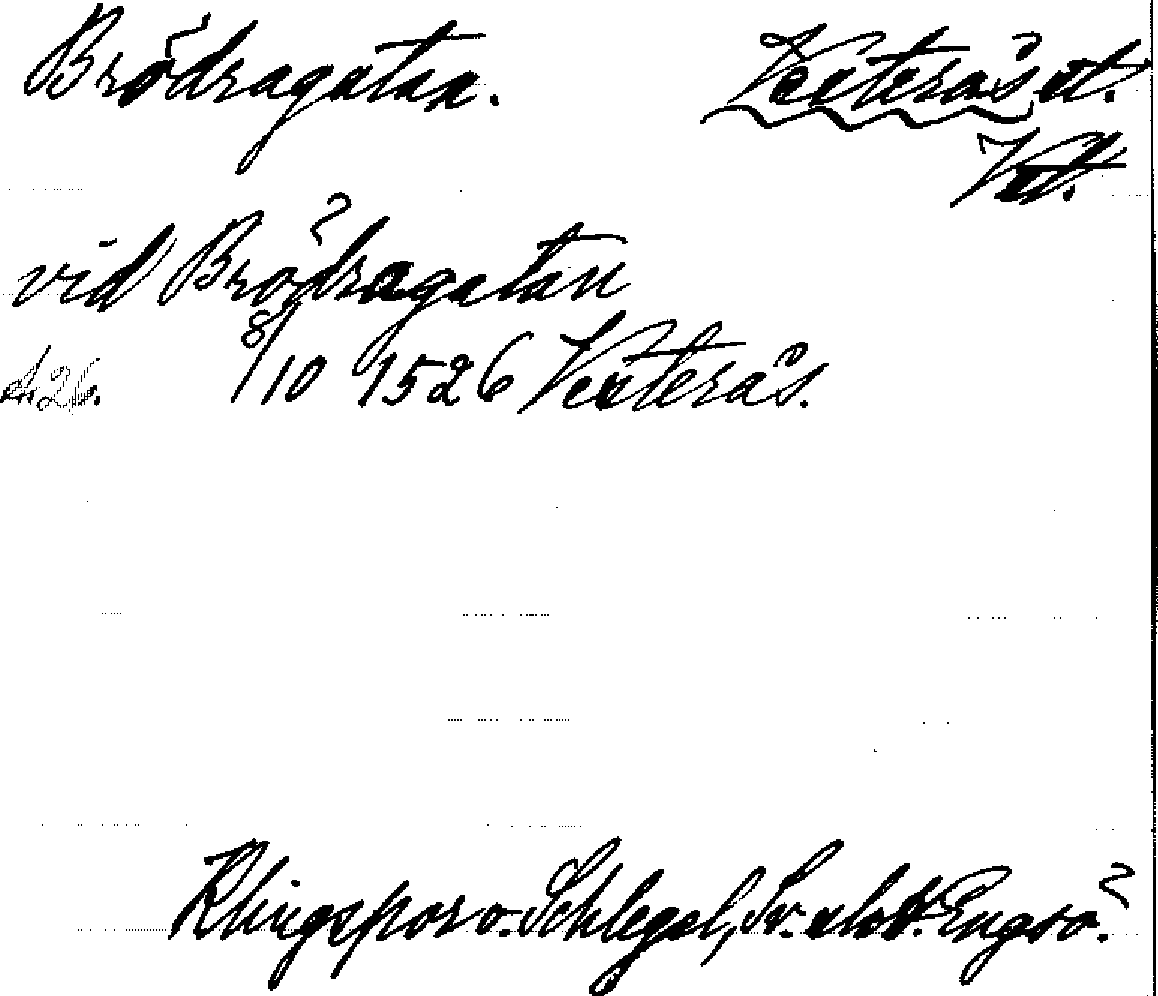 Brödragatan. Västerås st.
Vstm.
vid Brödragatan
8/10 1526 Västerås.
Klingspor o. Schlegel, Sv. slott. Engsö.